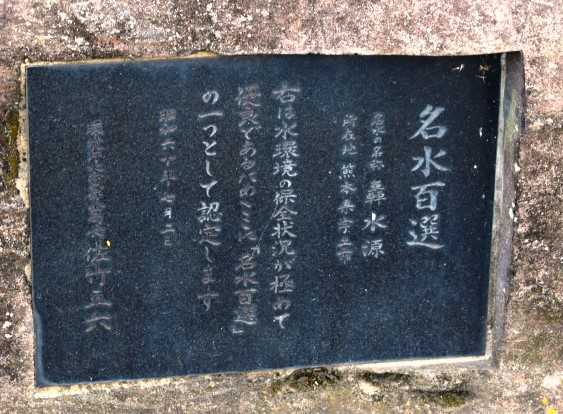 名水百選
名水の名称 轟水源
所在地 熊本県宇土市
右は水環境の保全状況が極めて
良好であるためここに「名水百選」
の一つとして認定します
昭和六十年七月二日